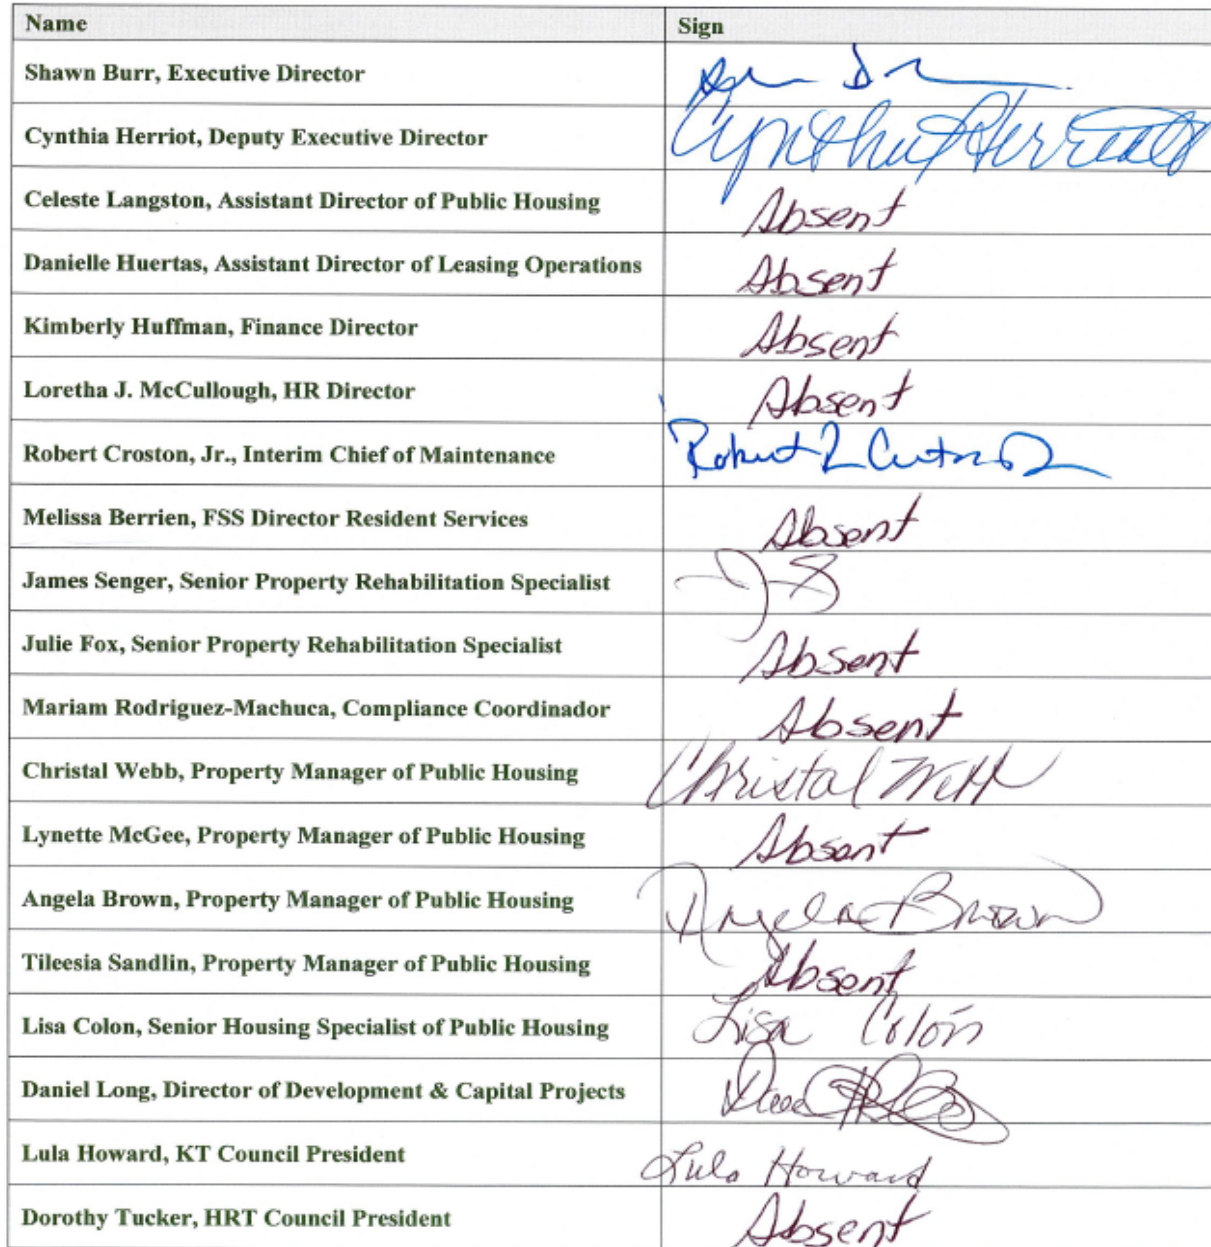 Name Sign
Shawn Burr, Executive Director
Cynthia Herriot, Deputy Executive Director Cynthia Herriott
Celeste Langston, Assistant Director of Public Housing Absent
Danielle Huertas, Assistant Director of Leasing Operations Absent
Kimberly Huffman, Finance Director Absent
Loretha J. McCullough, HR Director Absent
Robert Croston, Jr., Interim Chief of Maintenance Robert
Melissa Berrien, FSS Director Resident Services Absent
James Senger, Senior Property Rehabilitation Specialist JS
Julie Fox, Senior Property Rehabilitation Specialist Absent
Mariam Rodriguez-Machuca, Compliance Coordinador Absent
Christal Webb, Property Manager of Public Housing Christal Webb
Lynette McGee, Property Manager of Public Housing Absent
Angela Brown, Property Manager of Public Housing Angela Brown
Tileesia Sandlin, Property Manager of Public Housing Absent
Lisa Colon, Senior Housing Specialist of Public Housing Lisa Colón
Daniel Long, Director of Development & Capital Projects
Lula Howard, KT Council President Lula Howard
Dorothy Tucker, HRT Council President Absent